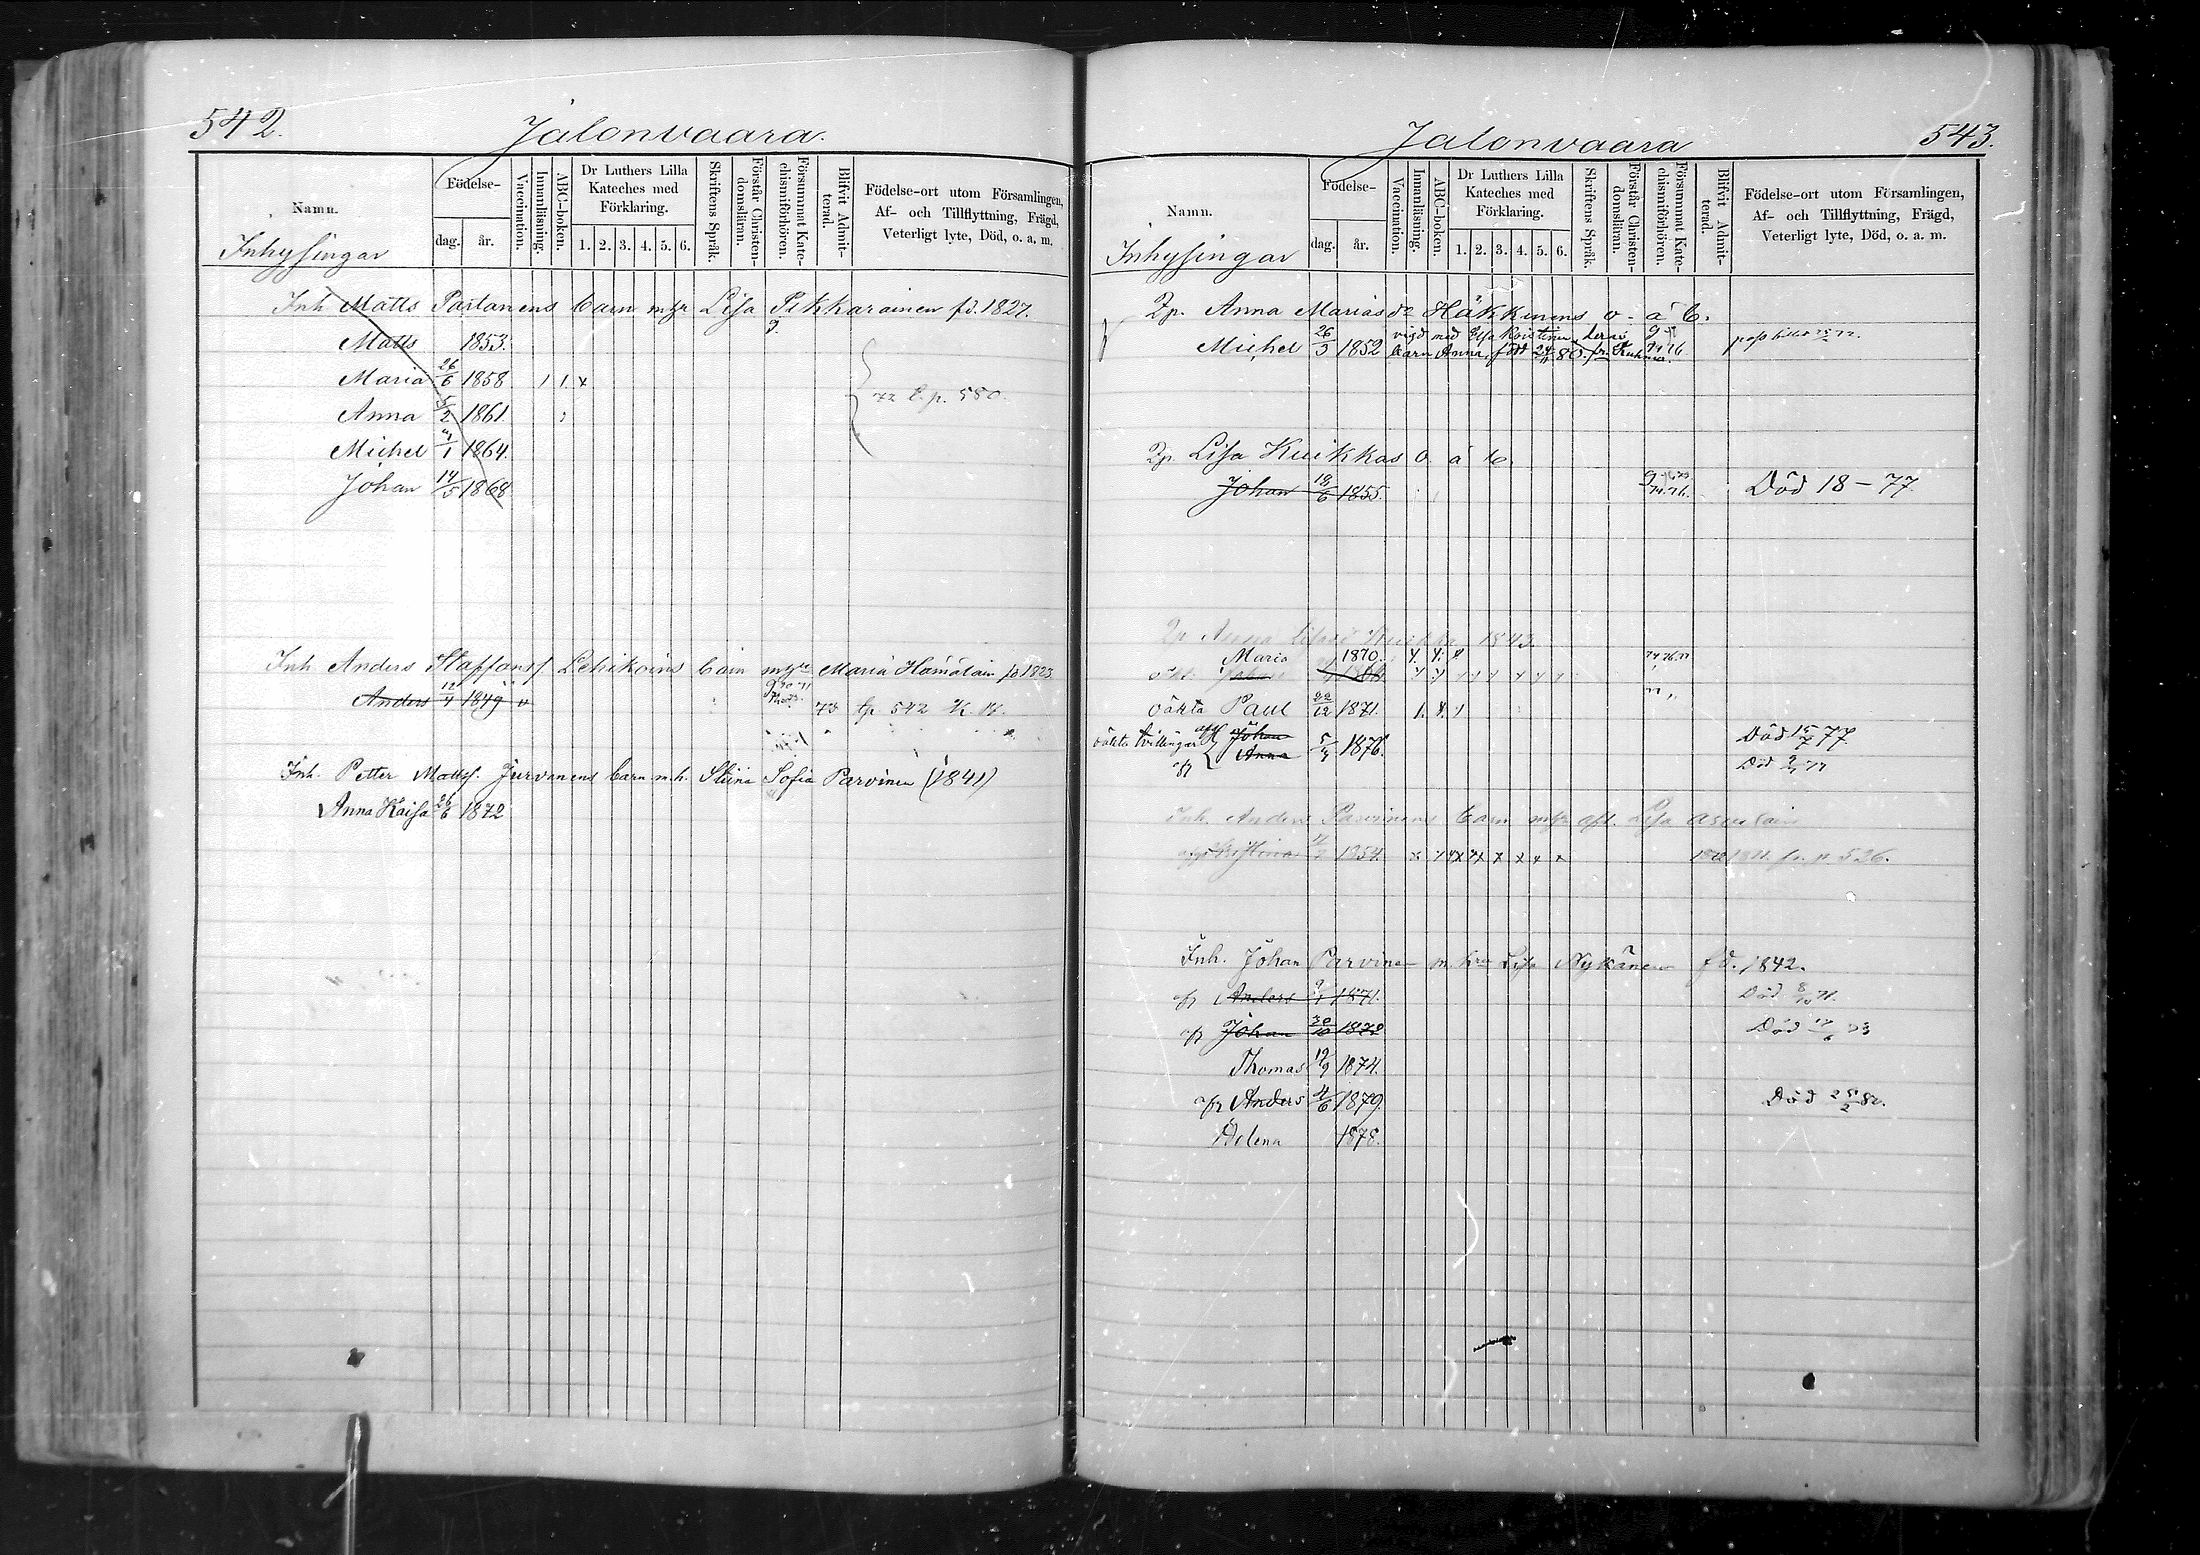 542. Jalonvaara.
Namn. Födelse- dag. år. Vaccination. Innanläsning. ABC-boken. Dr Luthers Lilla Kateches med Förklaring. 1. 2. 3. 4. 5. 6. Skriftens Språk. Förstår Christendomsläran. Försummat Katechismiförhören. Blifvit Admitterad. Födelse-ort utom Församlingen, Af- och Tillflyttning, Frägd, Veterligt lyte, Död, o. a. m.
Inhysingar
Inh Matts Partanens barn m hr Lisa Pikkarainen fd. 1827.
Matts 1853.
Maria 26/6 1858 1 1 x
Anna 5/2 1861. 72 t. p. 580.
Michel 1864.
Johan 14/5 1868
Inh Anders Staffanss Lehikoins barn Maria Hämäläin fd 1823
Anders 12/4 1849 v 542
Inh. Petter Mattss. Jurvanens barn m. h. Stiina Sofia Parvinen (1841)
Anna Kaisa 26/6 1872
Jalonvaara 543.
Namn. Födelse- dag. år. Vaccination. Innanläsning. ABC-boken. Dr Luthers Lilla Kateches med Förklaring. 1. 2. 3. 4. 5. 6. Skriftens Språk. Förstår Christendomsläran. Försummat Katechismiförhören. Blifvit Admitterad. Födelse-ort utom Församlingen, Af- och Tillflyttning, Frägd, Veterligt lyte, Död, o. a. m.
Inhysingar
Qp. Anna Mariasdr Häkkinens o. ä. b.
vigd med Elsa Kristina, deras
Michel 26/3 1852 barn Anna, född 80.
Qp. Lisa Kuikkas o ä b
Johan 18/6 1855. Död 18 – 77.
Qp Anna Kuikka 1843.
Maria 1870.
oäkta Paul 22/12 1871.
oäkta tvillingar Johan 5/4 1876. Död 77.
Anna Död 77
Inh. Anders Parvinens barn Lisa
Kristina 1854. fr. p. 526.
Inh. Johan Parvinen m. hr Lisa Nykänen fd. 1842.
Anders 9/1 1871. Död 8/10 71.
Johan 30/10 1872 Död 73
Thomas 19/9 1874.
Anders 4/6 1879. Död 25/2 82.
Helena 1878.